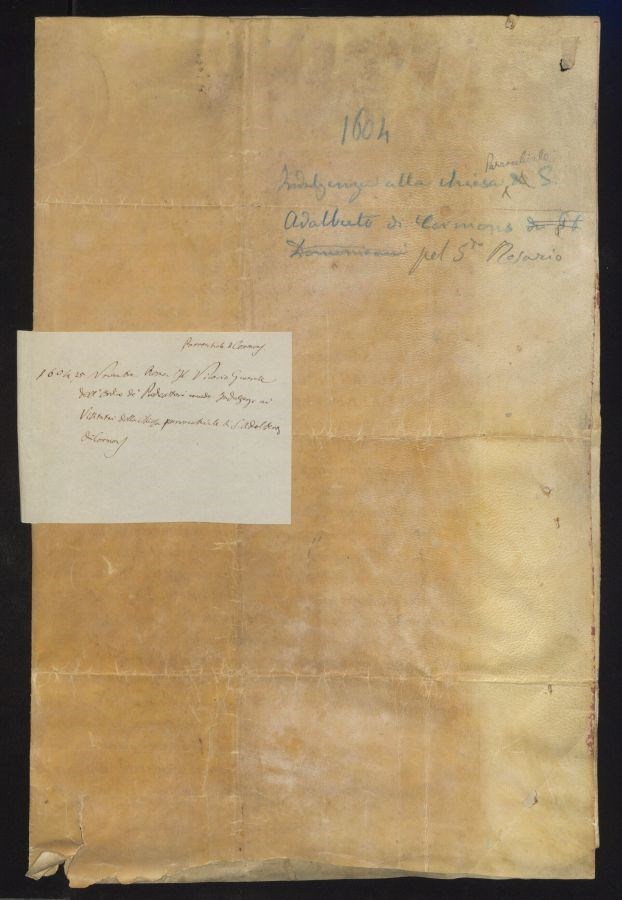 1604
Indulgenza alla chiesa Parrochiale S.
Adalberto di Cormons
Domenicani pel S.mo Rosario
Parrochiale di Cormons
1604, 25 Novembre Roma Il Vicario Generale
dell'Ordine de' Predicatori concede Indulgenze ai
Visitatori della Chiesa parrocchiale di S. Adalberto
di Cormons